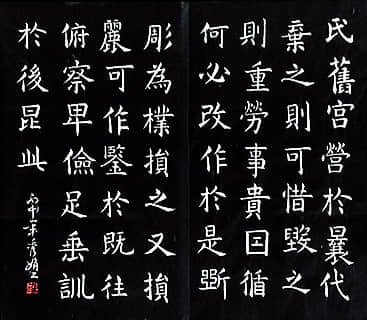 氏舊宫營於曩代
棄之則可惜毀之
則重勞事貴因循
何必改作於是斲
彫為樸損之又損
麗可作鑒於既往
俯察卑儉足垂訓
於後昆此
丙申年